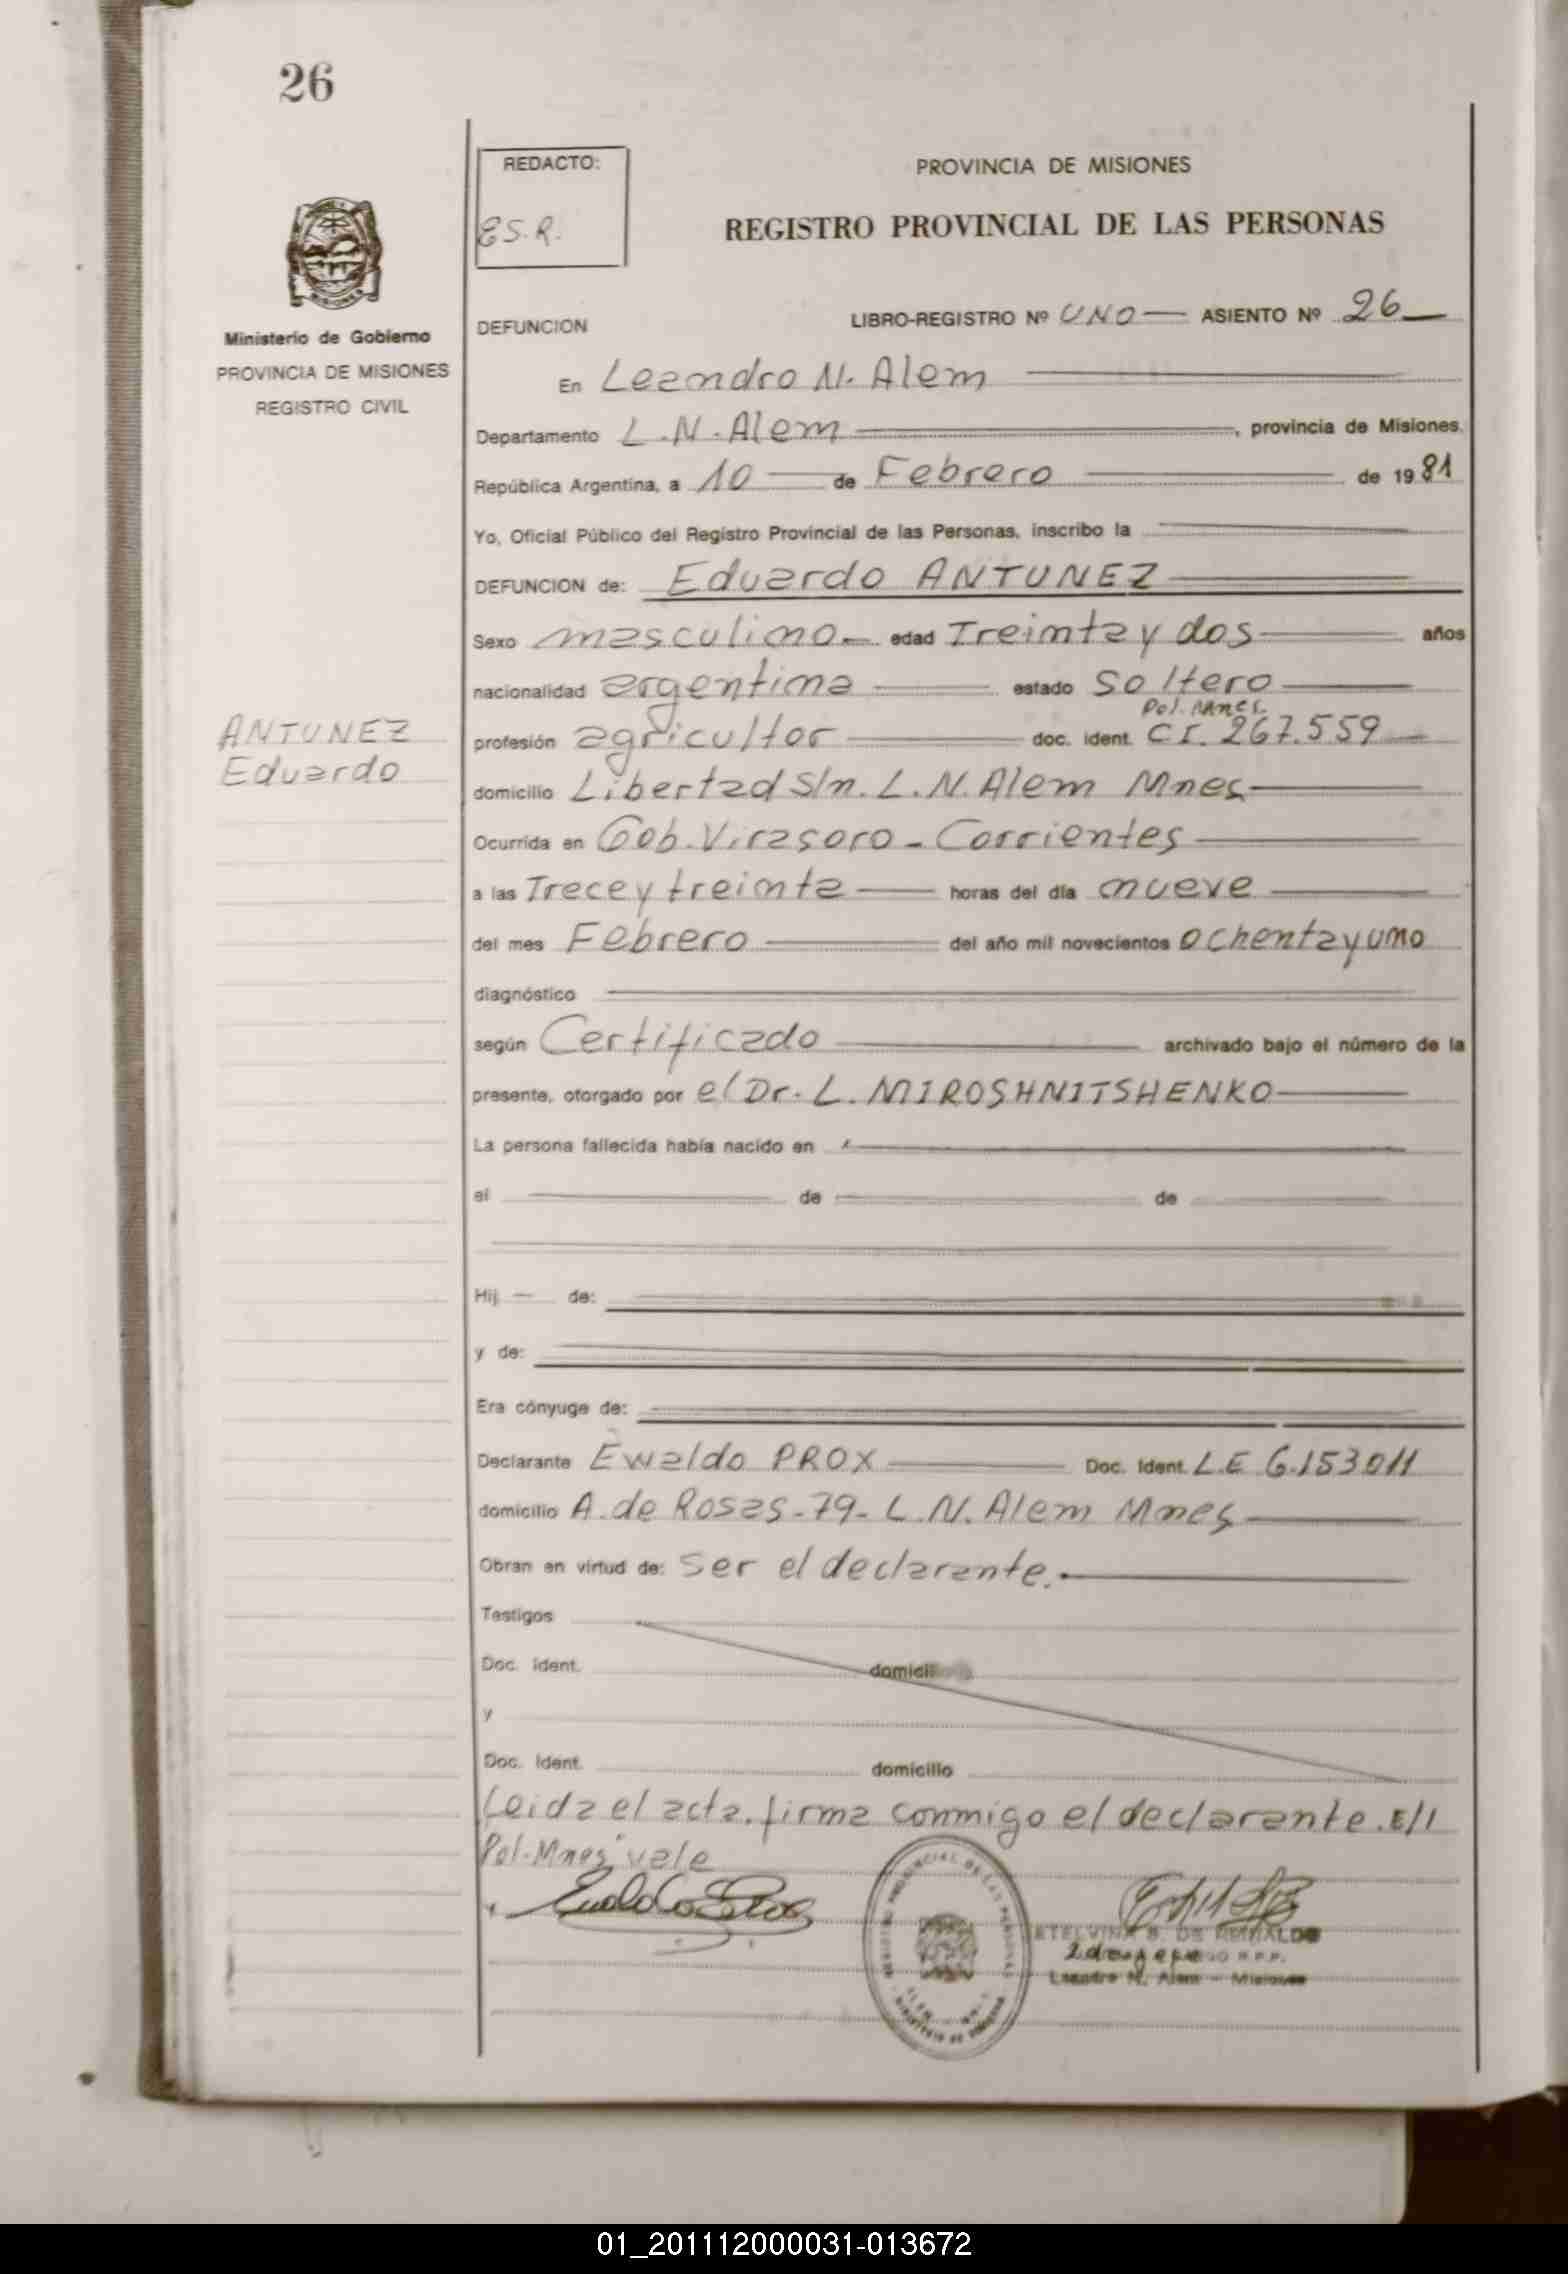 26
REDACTO:
E.S.R.
PROVINCIA DE MISIONES
REGISTRO PROVINCIAL DE LAS PERSONAS
MISIONES
Ministerio de Gobierno
PROVINCIA DE MISIONES
REGISTRO CIVIL
DEFUNCION LIBRO-REGISTRO Nº UNO ASIENTO Nº 26
En Leandro N. Alem
Departamento L.N. Alem, provincia de Misiones.
República Argentina, a 10 de Febrero de 1981
Yo, Oficial Público del Registro Provincial de las Personas, inscribo la
DEFUNCION de: Eduardo ANTUNEZ
Sexo masculino edad Treinta y dos años
nacionalidad argentina estado Soltero
Pol. Mnes.
profesión agricultor doc. ident. C I. 267.559
ANTUNEZ
Eduardo
domicilio Libertad S/n. L.N. Alem Mnes
Ocurrida en Gob. Virasoro - Corrientes
a las Trece y treinta horas del día nueve
del mes Febrero del año mil novecientos ochenta y uno
diagnóstico
según Certificado archivado bajo el número de la
presente, otorgado por el Dr. L. MIROSHNITSHENKO
La persona fallecida había nacido en
el de de
Hij de:
y de:
Era cónyuge de:
Declarante Ewaldo PROX Doc. Ident. L.E 6.153011
domicilio A. de Rosas - 79 - L.N. Alem Mnes
Obran en virtud de: Ser el declarante.
Testigos
Doc. Ident. domicilio
y
Doc. Ident. domicilio
Leida el acta. firma conmigo el declarante. E/l
Pol-Mnes" vale
REGISTRO PROVINCIAL DE LAS PERSONAS
MINISTERIO DE GOBIERNO
ETELVINA S. DE REINALDO
R.P.P.
Leandro N. Alem - Misiones
01_201112000031-013672